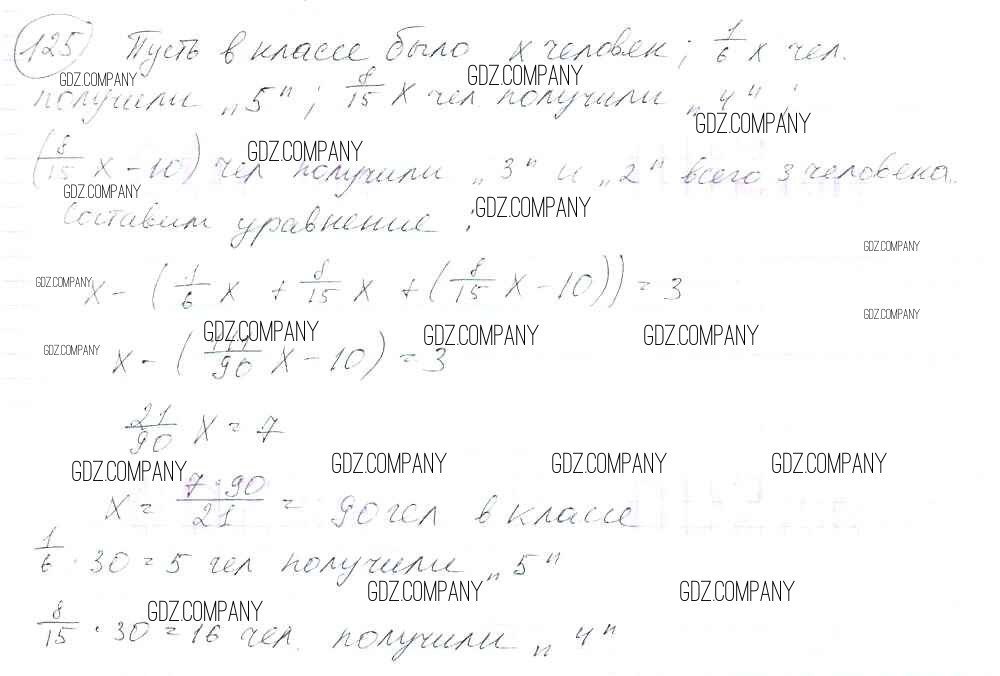 125 Пусть в классе было x человек; 1/6 x чел.
GDZ.COMPANY GDZ.COMPANY
получили „5"; 8/15 x чел получили „4";
GDZ.COMPANY
(8/15 x - 10) чел получили „3" и „2" всего 3 человека.
GDZ.COMPANY
GDZ.COMPANY
Составим уравнение:
GDZ.COMPANY
GDZ.COMPANY
x - (1/6 x + 8/15 x + (8/15 x - 10)) = 3
GDZ.COMPANY
GDZ.COMPANY
GDZ.COMPANY GDZ.COMPANY GDZ.COMPANY
x - (111/90 x - 10) = 3
GDZ.COMPANY
21/90 x = 7
GDZ.COMPANY GDZ.COMPANY GDZ.COMPANY GDZ.COMPANY
x = 7·90/21 = 90 чел в классе
1/6 · 30 = 5 чел получили „5"
GDZ.COMPANY GDZ.COMPANY
GDZ.COMPANY
8/15 · 30 = 16 чел. получили „4"